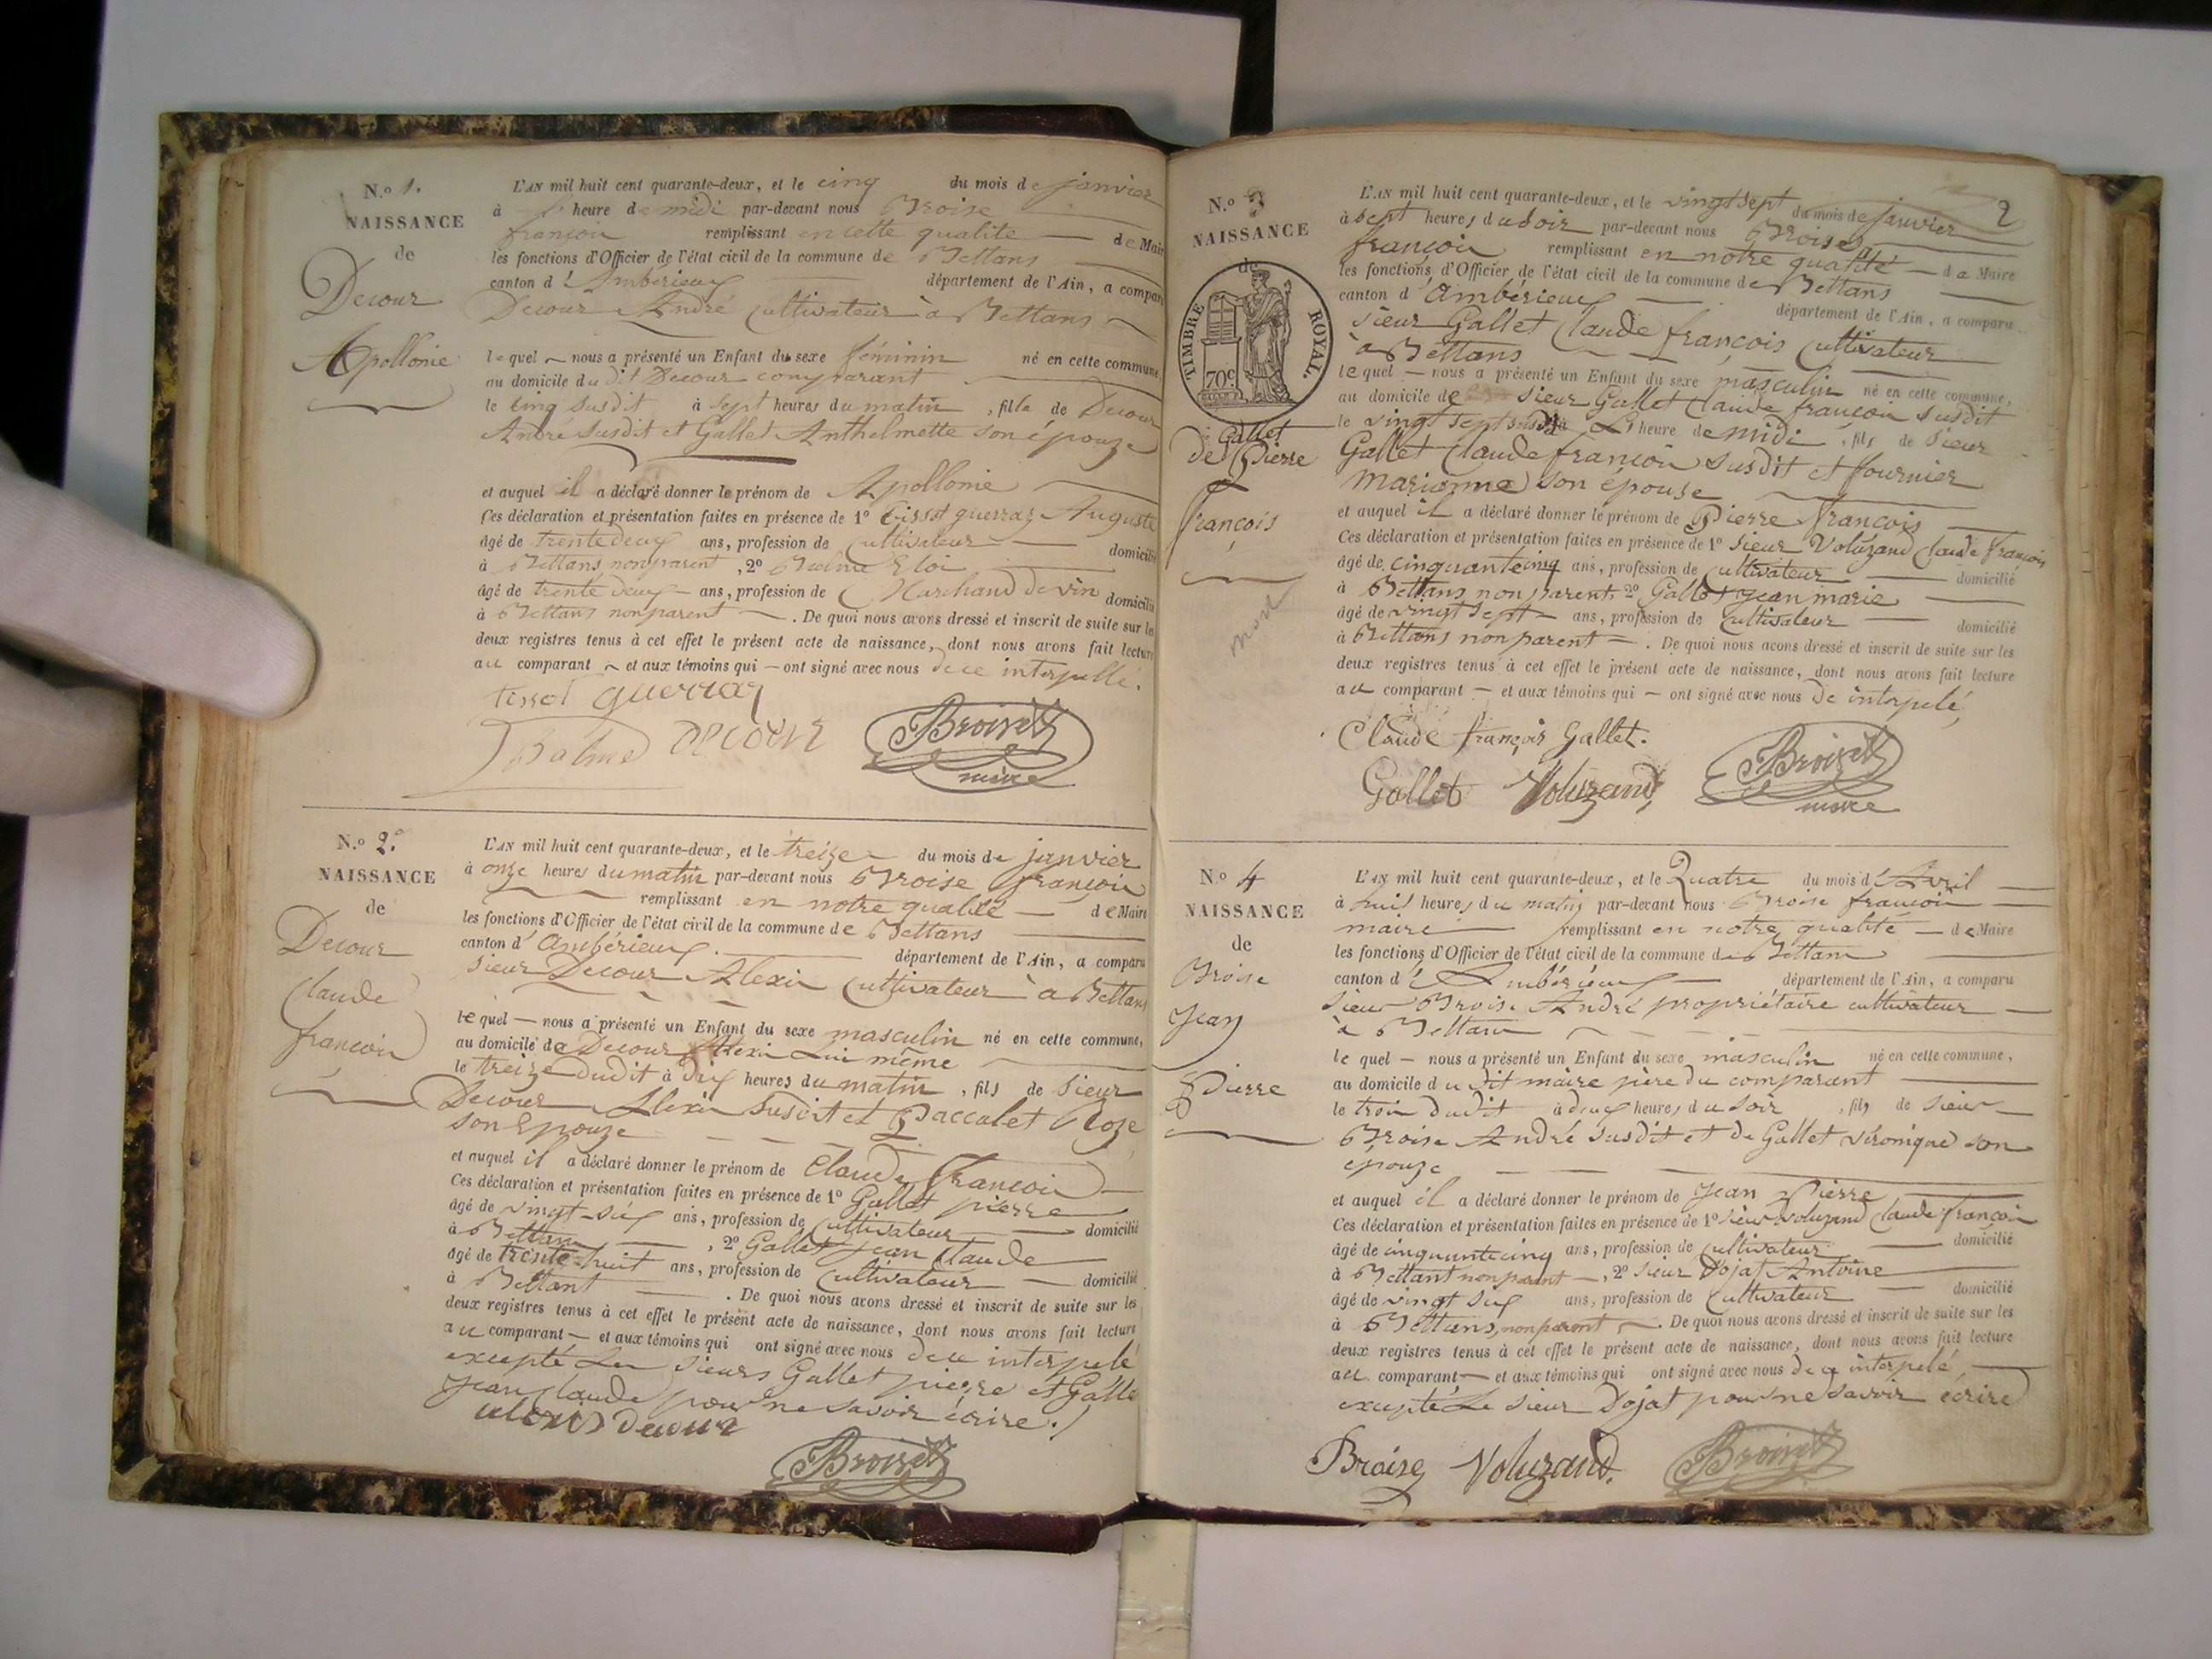 N.o 1.
NAISSANCE
de
Decour
Apollonie
L'AN mil huit cent quarante-deux, et le cinq du mois de janvier
à heure de midi par-devant nous Broise
françois remplissant en cette qualité de Mair
les fonctions d'Officier de l'état civil de la commune de Bettans
canton d'Ambérieux département de l'Ain, a compar
Decour André Cultivateur à Bettans
lequel nous a présenté un Enfant du sexe féminin né en cette commune,
au domicile du dit Decour comparant
le cinq susdit à sept heures du matin, fille de Decour
André susdit et Gallet Anthelmette son épouze
et auquel il a déclaré donner le prénom de Apollonie
Ces déclaration et présentation faites en présence de 1º Tissot guerraz Auguste
âgé de trente deux ans, profession de Cultivateur domicilié
à Bettans non parent, 2º Balme Eloi
âgé de trente deux ans, profession de Marchand de vin domicilié
à Bettans non parent. De quoi nous avons dressé et inscrit de suite sur les
deux registres tenus à cet effet le présent acte de naissance, dont nous avons fait lecture
au comparant et aux témoins qui ont signé avec nous de ce interpellé.
tissot guerraz
Balme decour Broise
maire
N.o 2.
NAISSANCE
de
Decour
Claude
françois
L'AN mil huit cent quarante-deux, et le treize du mois de janvier
à onze heures du matin par-devant nous Broise françois
remplissant en notre qualité de Maire
les fonctions d'Officier de l'état civil de la commune de Bettans
canton d'Ambérieux département de l'Ain, a comparu
sieur Decour Alexis Cultivateur à Bettans
lequel nous a présenté un Enfant du sexe masculin né en cette commune,
au domicile de Decour Alexis lui même
le treize dudit à dix heures du matin, fils de sieur
Decour Alexis susdit et Paccalet Roze
son Epouze
et auquel il a déclaré donner le prénom de Claude François
Ces déclaration et présentation faites en présence de 1º Gallet pierre
âgé de vingt-six ans, profession de Cultivateur domicilié
à Bettans, 2º Gallet Jean Claude
âgé de trente-huit ans, profession de Cultivateur domicilié
à Bettant. De quoi nous avons dressé et inscrit de suite sur les
deux registres tenus à cet effet le présent acte de naissance, dont nous avons fait lecture
au comparant et aux témoins qui ont signé avec nous de ce interpelé
excepté les sieurs Gallet pierre et Galle
Jean Claude pour ne savoir écrire.
alexis decour
Broise
2
N.o 3
NAISSANCE
de
TIMBRE ROYAL.
70c
Gallet
de Pierre
François
mort
L'AN mil huit cent quarante-deux, et le vingt sept du mois de janvier
à sept heures du soir par-devant nous Broise
françois remplissant en notre qualité de Maire
les fonctions d'Officier de l'état civil de la commune de Bettans
canton d'Ambérieux département de l'Ain, a comparu
sieur Gallet Claude françois Cultivateur
à Bettans
lequel nous a présenté un Enfant du sexe masculin né en cette commune,
au domicile de sieur Gallet Claude françois susdit
le vingt sept susdit heure de midi, fils de sieur
Gallet Claude françois susdit et fournier
marianne son épouse
et auquel il a déclaré donner le prénom de Pierre François
Ces déclaration et présentation faites en présence de 1º sieur Voluzand Claude François
âgé de cinquante cinq ans, profession de Cultivateur domicilié
à Bettans non parent 2º Gallet jean marie
âgé de vingt sept ans, profession de Cultivateur domicilié
à Bettans non parent. De quoi nous avons dressé et inscrit de suite sur les
deux registres tenus à cet effet le présent acte de naissance, dont nous avons fait lecture
au comparant et aux témoins qui ont signé avec nous de interpelé,
Claude françois Gallet.
Gallet Voluzand Broise
maire
N.o 4
NAISSANCE
de
Broise
Jean
Pierre
L'AN mil huit cent quarante-deux, et le Quatre du mois d'Avril
à huit heures du matin par-devant nous Broise françois
maire remplissant en notre qualité de Maire
les fonctions d'Officier de l'état civil de la commune de Bettans
canton d'Ambérieux département de l'Ain, a comparu
sieur Broise André propriétaire cultivateur
à Bettans
lequel nous a présenté un Enfant du sexe masculin né en cette commune,
au domicile du dit maire père du comparant
le trois dudit à deux heures du soir, fils de sieur
Broise André susdit et de Gallet véronique son
épouze
et auquel il a déclaré donner le prénom de Jean Pierre
Ces déclaration et présentation faites en présence de 1º sieur Voluzand Claude françois
âgé de cinquante cinq ans, profession de Cultivateur domicilié
à Bettant non parent, 2º sieur Dojat Antoine
âgé de vingt six ans, profession de Cultivateur domicilié
à Bettans, non parent. De quoi nous avons dressé et inscrit de suite sur les
deux registres tenus à cet effet le présent acte de naissance, dont nous avons fait lecture
au comparant et aux témoins qui ont signé avec nous de ce interpelé,
excepté le sieur Dojat pour ne savoir écrire
Broise Voluzand. Broise